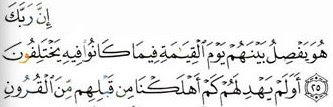 إِنَّ رَبَّكَ
هُوَ يَفْصِلُ بَيْنَهُمْ يَوْمَ ٱلْقِيَٰمَةِ فِيمَا كَانُوا۟ فِيهِ يَخْتَلِفُونَ
٢٥ أَوَلَمْ يَهْدِ لَهُمْ كَمْ أَهْلَكْنَا مِن قَبْلِهِم مِّنَ ٱلْقُرُونِ